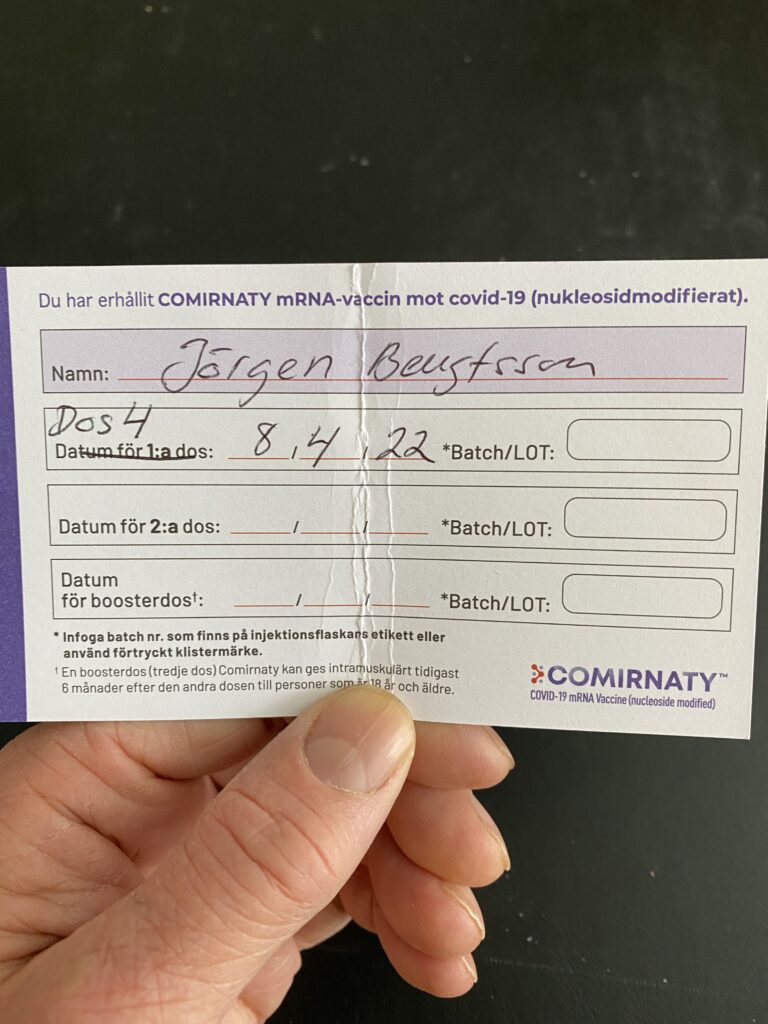 Du har erhållit COMIRNATY mRNA-vaccin mot covid-19 (nukleosidmodifierat).
Namn: Jörgen Bengtsson
Dos 4
Datum för 1:a dos: 8 / 4 / 22 *Batch/LOT:
Datum för 2:a dos: / / *Batch/LOT:
Datum
för boosterdos†: / / *Batch/LOT:
* Infoga batch nr. som finns på injektionsflaskans etikett eller
använd förtryckt klistermärke.
† En boosterdos (tredje dos) Comirnaty kan ges intramuskulärt tidigast
6 månader efter den andra dosen till personer som är 18 år och äldre.
COMIRNATY™
COVID-19 mRNA Vaccine (nucleoside modified)